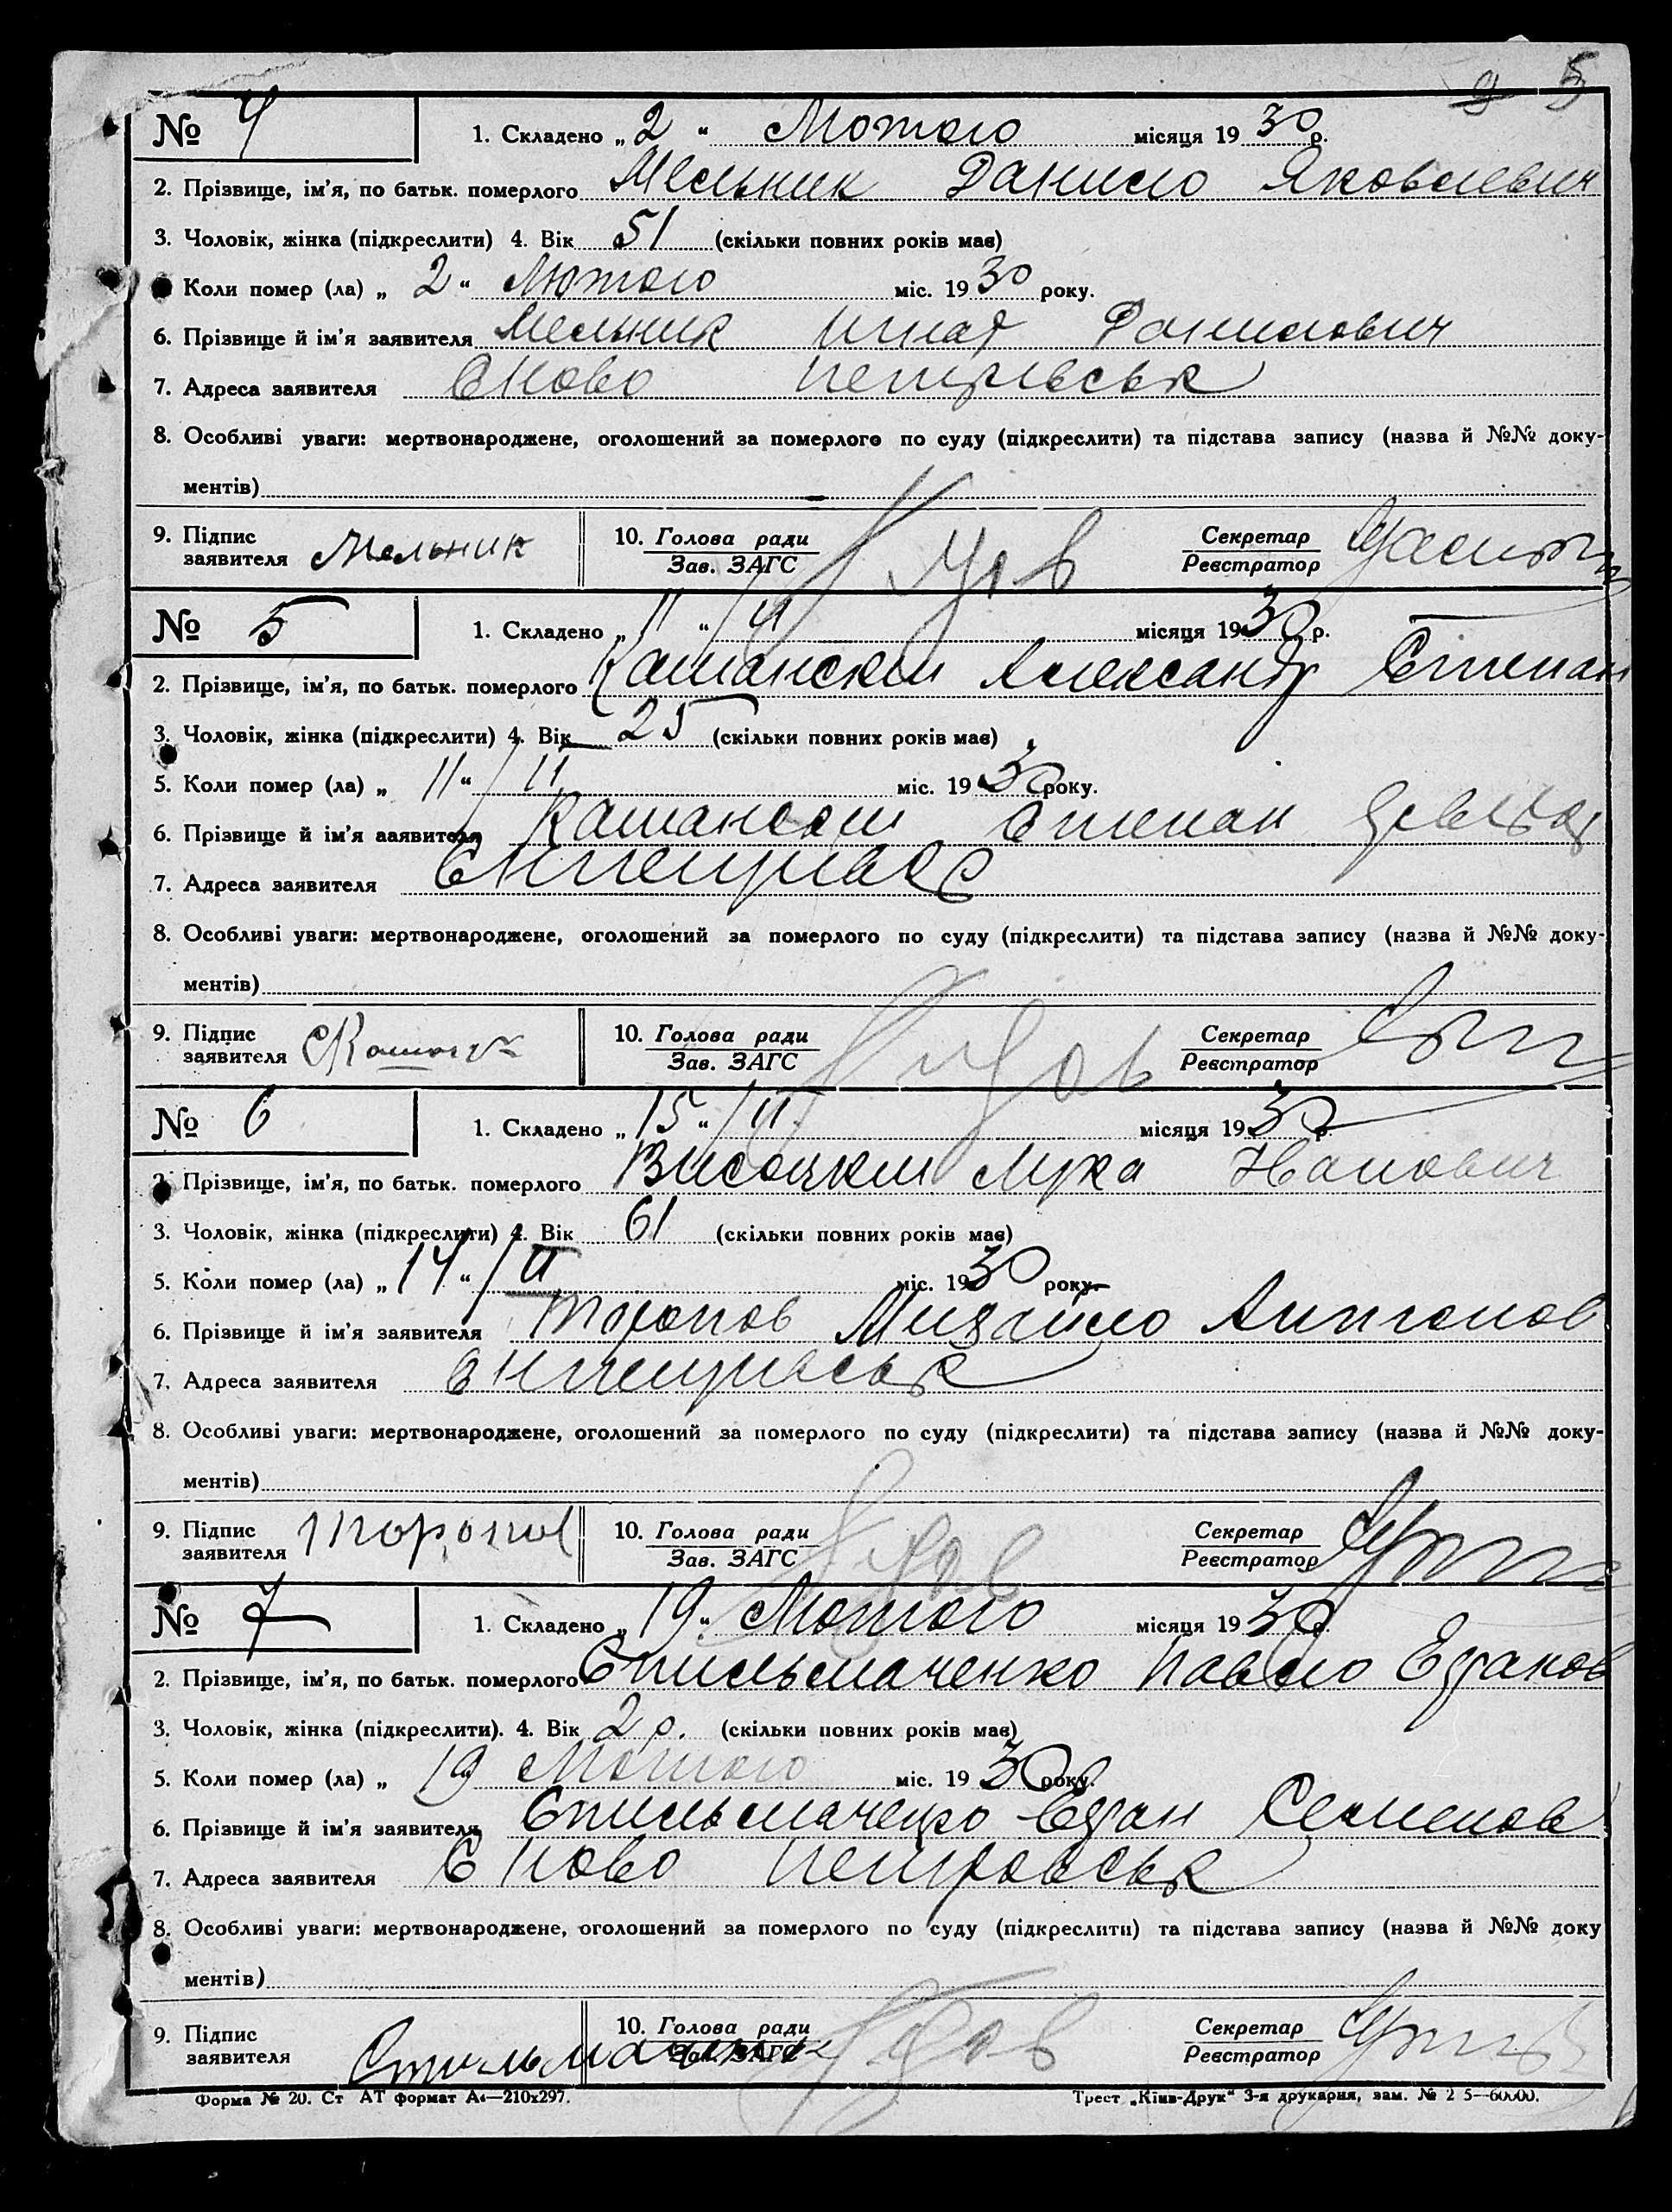 5
№ 4 1. Складено „ 2 “ Лютого місяця 1930 р.
2. Прізвище, ім’я, по батьк. померлого Мельник Данило Яковлевич
3. Чоловік, жінка (підкреслити) 4. Вік 51 (скільки повних років має)
Коли помер (ла) „ 2 “ Лютого міс. 1930 року.
6. Прізвище й ім’я заявителя Мельник Игнат Данилович
7. Адреса заявителя с Ново Петрівськ
8. Особливі уваги: мертвонароджене, оголошений за померлого по суду (підкреслити) та підстава запису (назва й №№ доку-
ментів)
9. Підпис заявителя Мельник 10. Голова ради Зав. ЗАГС Секретар Реєстратор
№ 5 1. Складено „ 11 “ / II місяця 1930 р.
2. Прізвище, ім’я, по батьк. померлого Александр Степан
3. Чоловік, жінка (підкреслити) 4. Вік 25 (скільки повних років має)
5. Коли помер (ла) „ 11 “ / II міс. 1930 року.
6. Прізвище й ім’я заявителя Степан
7. Адреса заявителя
8. Особливі уваги: мертвонароджене, оголошений за померлого по суду (підкреслити) та підстава запису (назва й №№ доку-
ментів)
9. Підпис заявителя 10. Голова ради Зав. ЗАГС Секретар Реєстратор
№ 6 1. Складено „ 15 “ / II місяця 1930 р.
2. Прізвище, ім’я, по батьк. померлого Висоцкий Лука Иванович
3. Чоловік, жінка (підкреслити) 4. Вік 61 (скільки повних років має)
5. Коли помер (ла) „ 14 “ / II міс. 1930 року.
6. Прізвище й ім’я заявителя Торопов Михайло Антонов
7. Адреса заявителя
8. Особливі уваги: мертвонароджене, оголошений за померлого по суду (підкреслити) та підстава запису (назва й №№ доку-
ментів)
9. Підпис заявителя Торопов 10. Голова ради Зав. ЗАГС Секретар Реєстратор
№ 7 1. Складено „ 19 “ Лютого місяця 1930 р.
2. Прізвище, ім’я, по батьк. померлого Стильмаченко Павло
3. Чоловік, жінка (підкреслити). 4. Вік 2 р. (скільки повних років має)
5. Коли помер (ла) „ 19 Лютого міс. 1930 року.
6. Прізвище й ім’я заявителя Стильмаченко Семенов
7. Адреса заявителя с Ново Петровськ
8. Особливі уваги: мертвонароджене, оголошений за померлого по суду (підкреслити) та підстава запису (назва й №№ доку
ментів)
9. Підпис заявителя 10. Голова ради Зав. ЗАГС Секретар Реєстратор
Форма № 20. Ст АТ формат А4—210х297. Трест „Київ-Друк“ 3-я друкарня, зам. №